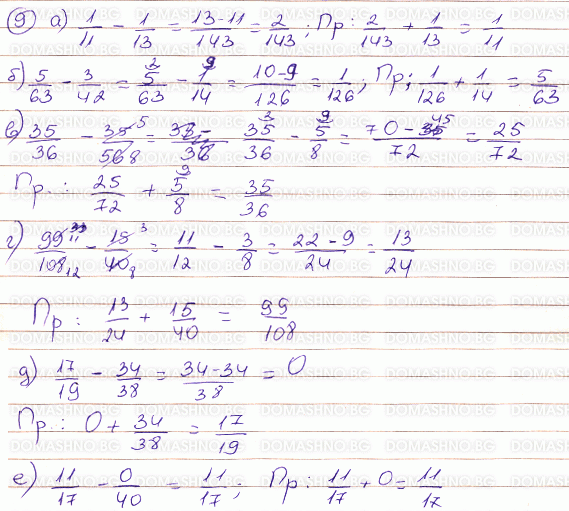 9) а) 1/11 - 1/13 = 13-11/143 = 2/143; Пр: 2/143 + 1/13 = 1/11
б) 5/63 - 3/42 = 5/63 - 1/14 = 10-9/126 = 1/126; Пр: 1/126 + 1/14 = 5/63
в) 35/36 - 35/56 = 35/36 - 5/8 = 70-45/72 = 25/72
Пр.: 25/72 + 5/8 = 35/36
г) 99/108 - 15/40 = 11/12 - 3/8 = 22-9/24 = 13/24
Пр: 13/24 + 15/40 = 99/108
д) 17/19 - 34/38 = 34-34/38 = 0
Пр.: 0 + 34/38 = 17/19
е) 11/17 - 0/40 = 11/17; Пр: 11/17 + 0 = 11/17